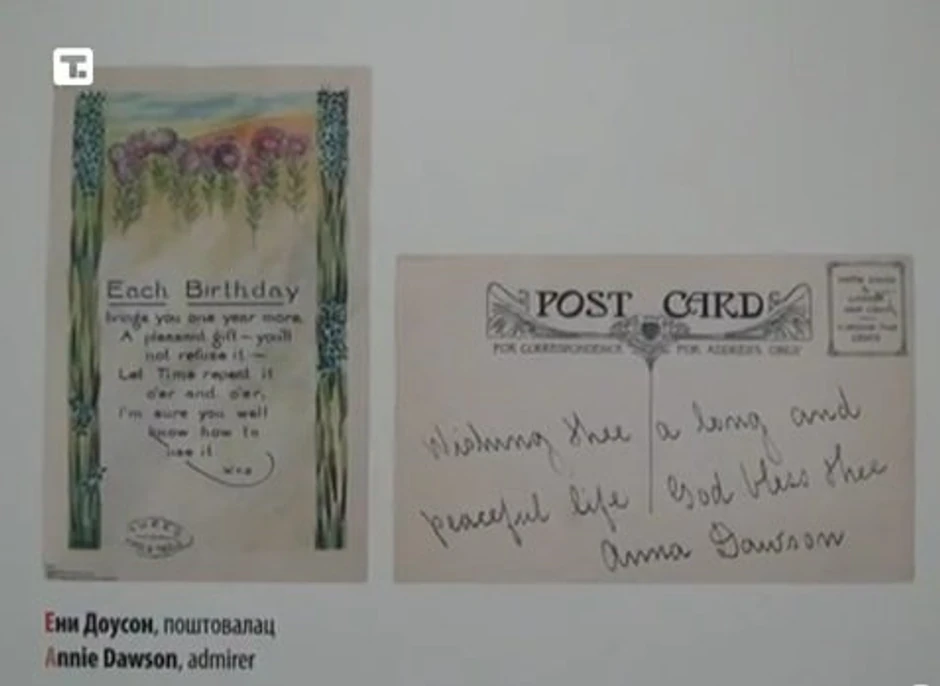 T.
Each Birthday
brings you one year more,
A pleasant gift – you'll
not refuse it –
Let Time repeat it
o'er and o'er,
I'm sure you well
know how to
use it
POST CARD
FOR CORRESPONDENCE FOR ADDRESS ONLY
Wishing thee a long and
peaceful life God bless thee
Anna Dawson
Ени Доусон, поштовалац
Annie Dawson, admirer